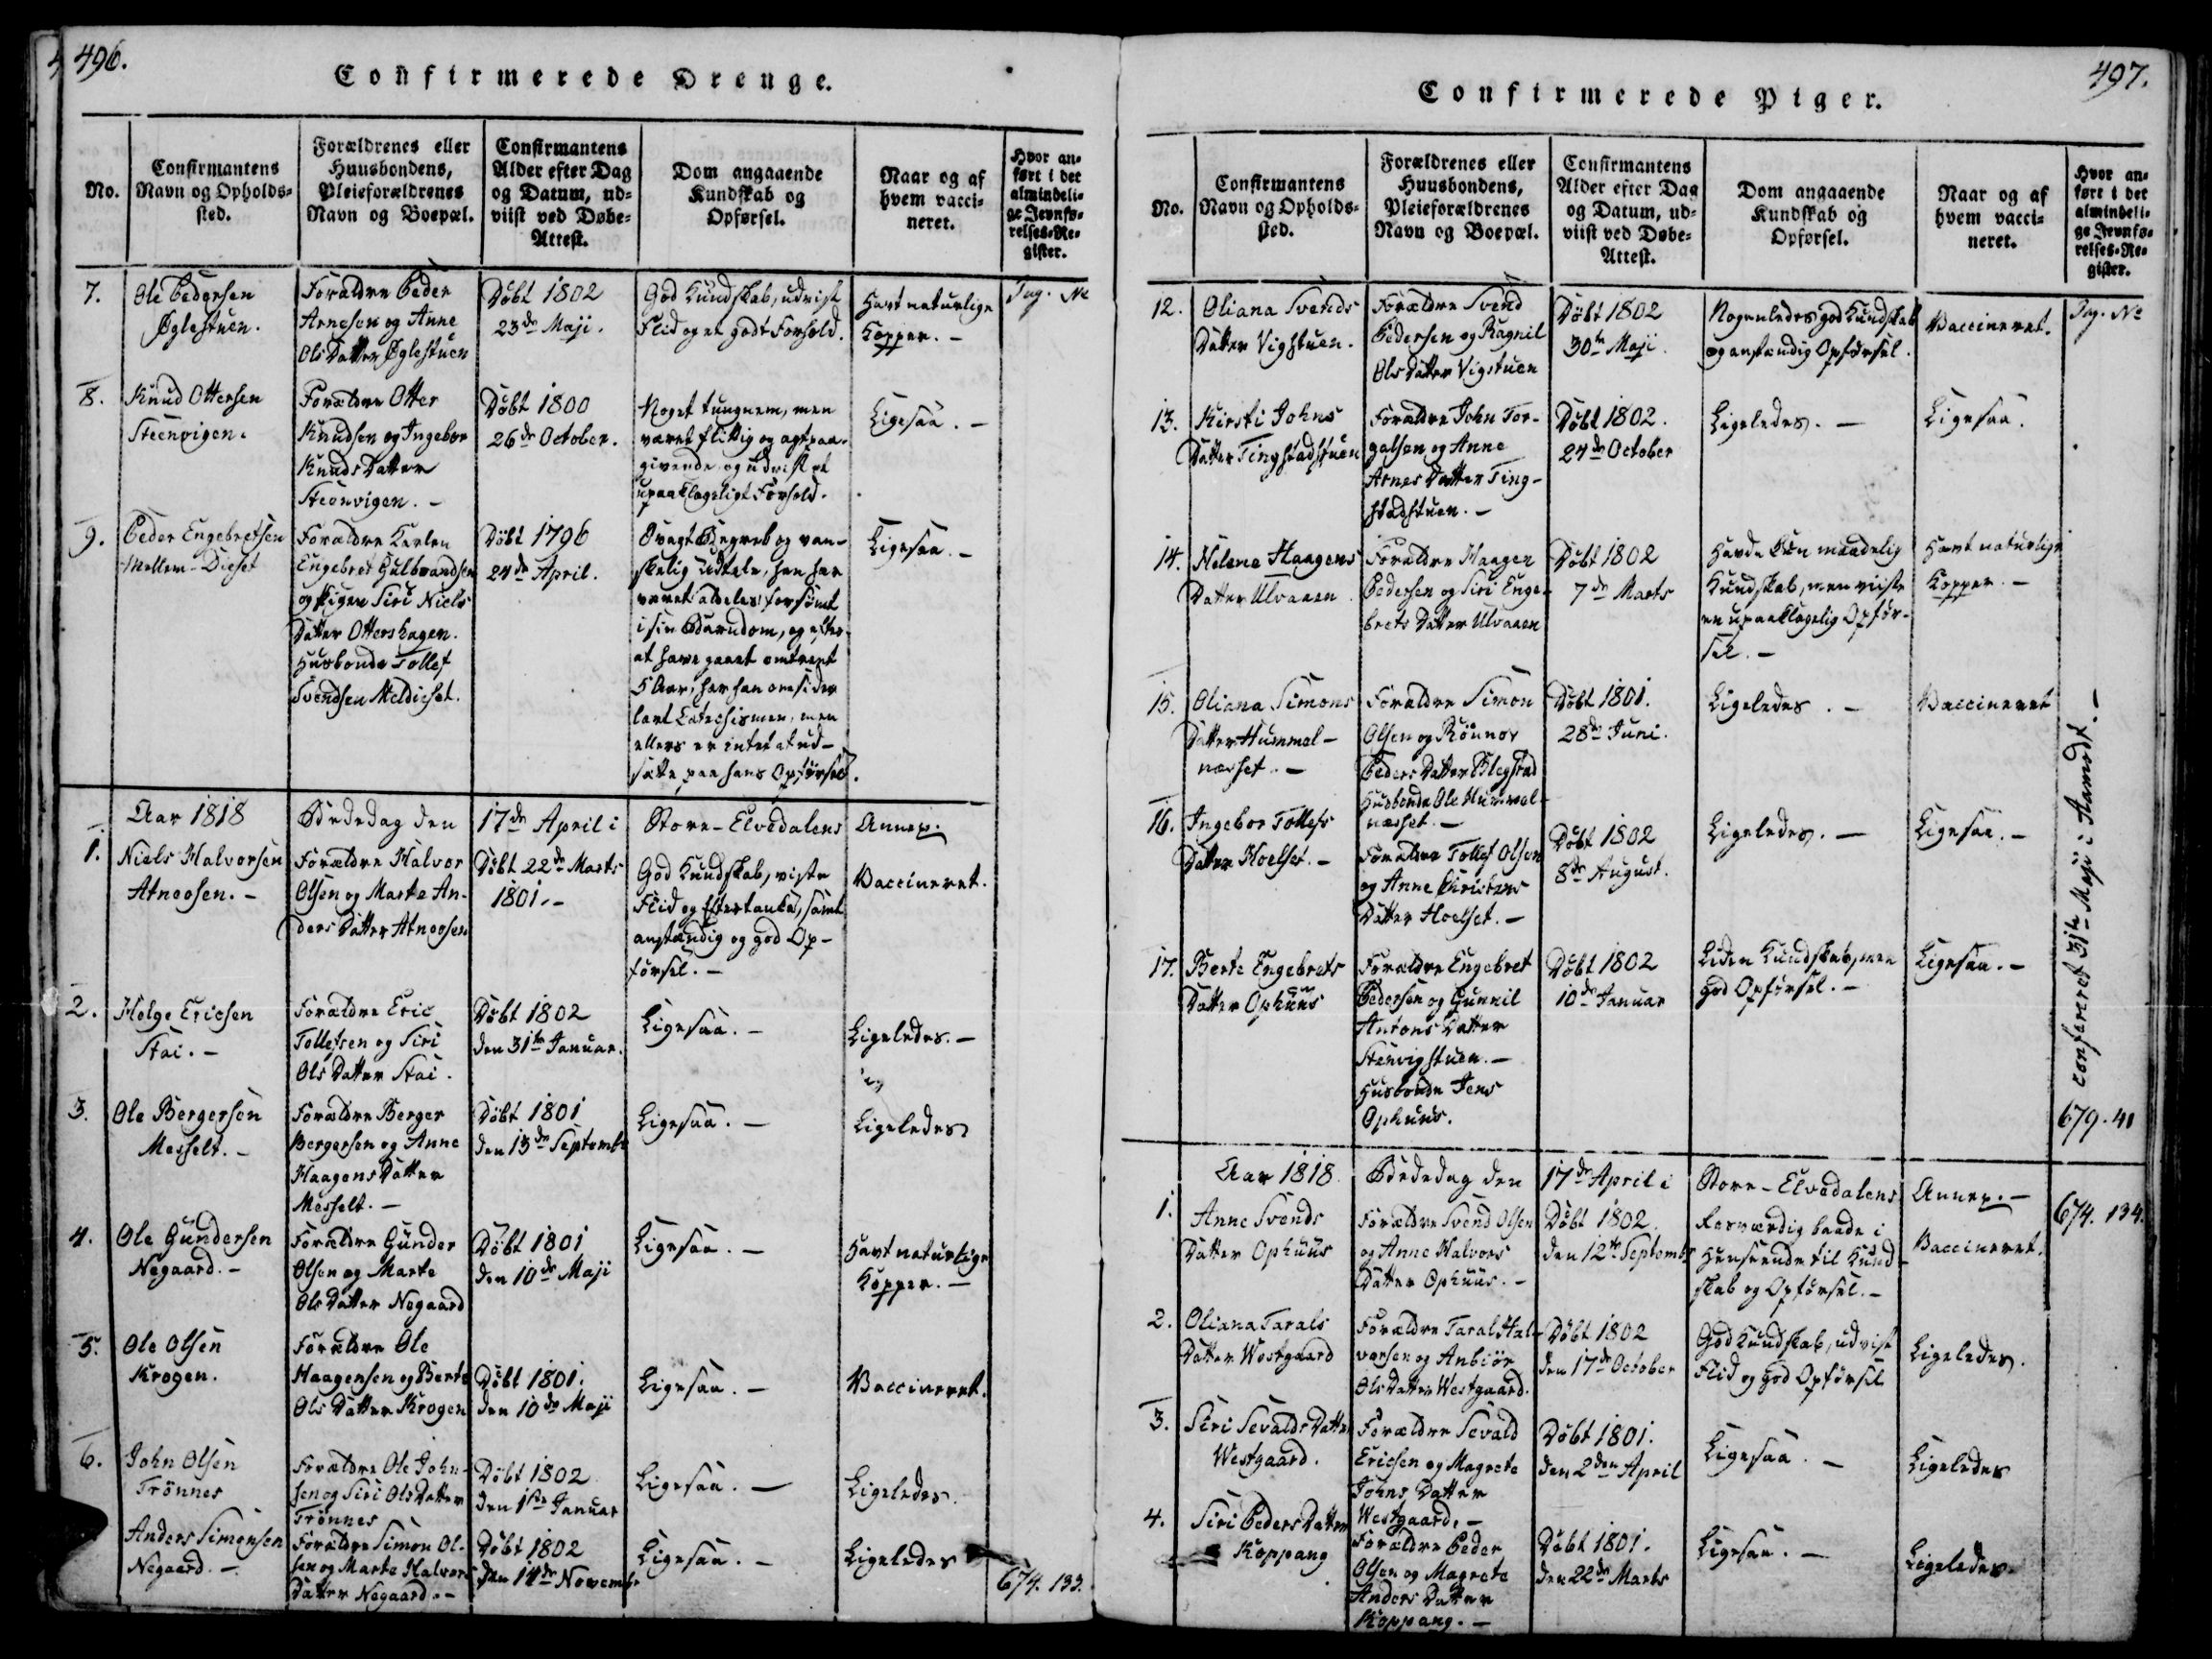 496.
Confirmerede Drenge.
No.
Confirmantens
Navn og Opholds-
sted.
Forældrenes eller
Huusbondens,
Pleieforældrenes
Navn og Boepæl.
Confirmantens
Alder efter Dag
og Datum, ud-
viist ved Døbe-
Attest.
Dom angaaende
Kundskab og
Opførsel.
Naar og af
hvem vacci-
neret.
Hvor an-
ført i det
almindeli-
ge Jevnfø-
relses-Re-
gister.
7.
Ole Pedersen
Øglestuen.
Forældre Peder
Arnesen og Anne
Ols Datter Øglestuen
Döbt 1802
23de Maji.
God Kundskab, udviist
Flid og et godt Forhold.
Havt naturlige
Kopper. -
Pag. No
8.
Knud Ottersen
Steenvigen.
Forældre Otter
Knudsen og Ingebor
Knuds Datter
Steenvigen. -
Döbt 1800
26de October.
Noget tungnem, men
været flittig og agtpaa-
givende og udviist et
upaaklageligt Forhold.
Ligesaa. -
9.
Peder Engebretsen
Mellem-Dieset
Forældre Karlen
Engebret Gulbrandsen
og Pigen Siri Niels
Datter Ottershagen.
Husbonde Tollef
Svendsen Meldieset.
Döbt 1796
24de April.
Svagt Begreb og van-
skelig Udtale, han har
været aldeles forsömt
i sin Barndom, og efter
at have gaaet omtrent
5 Aar, har han omsider
lært Catechismen, men
ellers er intet at ud-
sætte paa hans Opförsel.
Ligesaa. -
Aar 1818
Bededag den
17de April i
Store-Elvedalens
Annex.
1.
Niels Halvorsen
Atneosen. -
Forældre Halvor
Olsen og Marte An-
ders Datter Atneosen
Döbt 22de Marts
1801. -
God Kundskab, viste
Flid og Eftertanke, samt
anstændig og god Op-
försel. -
Vaccineret.
2.
Helge Ericsen
Stai. -
Forældre Eric
Tollefsen og Siri
Ols Datter Stai.
Döbt 1802
den 31te Januar.
Ligesaa. -
Ligeledes. -
3.
Ole Bergersen
Messelt. -
Forældre Berger
Bergersen og Anne
Haagens Datter
Messelt. -
Döbt 1801
den 13de Septembr
Ligesaa. -
Ligeledes
4.
Ole Gundersen
Negaard. -
Forældre Gunder
Olsen og Marte
Ols Datter Negaard
Döbt 1801
den 10de Maji
Ligesaa. -
Havt naturlige
Kopper. -
5.
Ole Olsen
Krogen.
Forældre Ole
Haagensen og Berte
Ols Datter Krogen
Döbt 1801.
den 10de Maji
Ligesaa. -
Vaccineret.
6.
John Olsen
Trönnes
Forældre Ole John-
sen og Siri Ols Datter
Trönnes
Döbt 1802
den 1ste Januar
Ligesaa. -
Ligeledes.
Anders Simensen
Negaard. -
Forældre Simon Ol-
sen og Marte Halvors
Datter Negaard. -
Döbt 1802
den 14de Novembr
Ligesaa. -
Ligeledes
674. 133.
497.
Confirmerede Piger.
No.
Confirmantens
Navn og Opholds-
sted.
Forældrenes eller
Huusbondens,
Pleieforældrenes
Navn og Boepæl.
Confirmantens
Alder efter Dag
og Datum, ud-
viist ved Døbe-
Attest.
Dom angaaende
Kundskab og
Opførsel.
Naar og af
hvem vacci-
neret.
Hvor an-
ført i det
almindeli-
ge Jevnfø-
relses-Re-
gister.
12.
Oliana Svends
Datter Vigstuen.
Forældre Svend
Pedersen og Ragnil
Ols Datter Vigstuen
Döbt 1802
30te Maji.
Nogenledes god Kundskab
og anstændig Opförsel.
Vaccineret.
Pag. No
13.
Kirsti Johns
Datter Tingstadstuen
Forældre John Tor-
galsen og Anne
Arnes Datter Ting-
stadstuen. -
Döbt 1802.
24de October
Ligeledes. -
Ligesaa.
14.
Helene Haagens
Datter Ulvaaen
Forældre Haagen
Pedersen og Siri Enge-
brets Datter Ulvaaen
Döbt 1802
7de Marts
Havde kun maadelig
Kundskab, men viiste
en upaaklagelig Opför-
sel. -
Havt naturlige
Kopper. -
15.
Oliana Simons
Datter Hummel-
næsset. -
Forældre Simon
Olsen og Rönnov
Peders Datter Blegstad
Husbonde Ole Hummel-
næsset. -
Döbt 1801.
28de Juni.
Ligeledes. -
Vaccineret
16.
Ingebor Tollefs
Datter Hoelset. -
Forældre Tollef Olsen
og Anne Christens
Datter Hoelset. -
Döbt 1802
8de August.
Ligeledes. -
Ligesaa. -
17.
Berte Engebrets
Datter Ophuus
Forældre Engebret
Pedersen og Gunnil
Antons Datter
Stenvigstuen. -
Husbonde Jens
Ophuus.
Döbt 1802
10de Januar
Liden Kundskab, men
god Opförsel. -
Ligesaa. -
confereret 31te Maji i Aamodt. -
679. 41
Aar 1818.
Bededag den
17de April i
Store-Elvedalens
Annex. -
674. 134.
1.
Anne Svends
Datter Ophuus
Forældre Svend Olsen
og Anne Halvors
Datter Ophuus. -
Döbt 1802.
den 12te Septembr
Rosværdig baade i
Henseende til Kund-
skab og Opförsel. -
Vaccineret.
2.
Oliana Tarals
Datter Westgaard
Forældre Taral Hal-
vorsen og Anbiör
Ols Datter Westgaard.
Döbt 1802
den 17de October
God Kundskab, udviist
Flid og god Opförsel
Ligeledes.
3.
Siri Sevalds Datter
Westgaard.
Forældre Sevald
Ericsen og Magrete
Johns Datter
Westgaard. -
Döbt 1801.
den 2den April
Ligesaa. -
Ligeledes
4.
Siri Peders Datter
Koppang
Forældre Peder
Olsen og Magrete
Anders Datter
Koppang. -
Döbt 1801.
den 22de Marts
Ligesaa. -
Ligeledes.